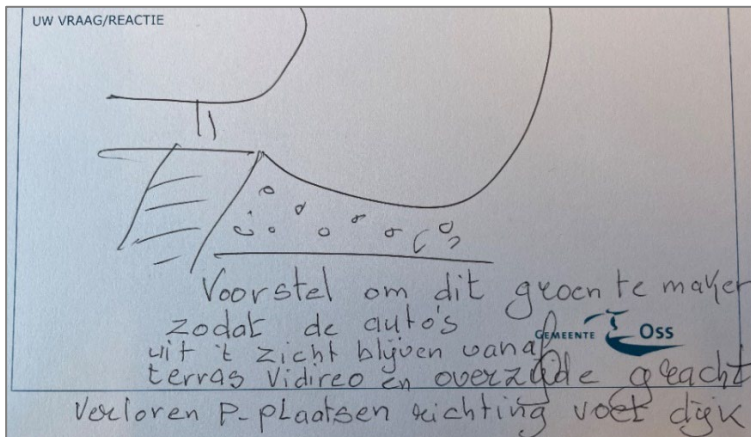 UW VRAAG/REACTIE
Voorstel om dit groen te maken
zodat de auto's
GEMEENTE OSS
uit 't zicht blijven vanaf
terras Vidireo en overzijde gracht
Verloren P-plaatsen richting voet dijk